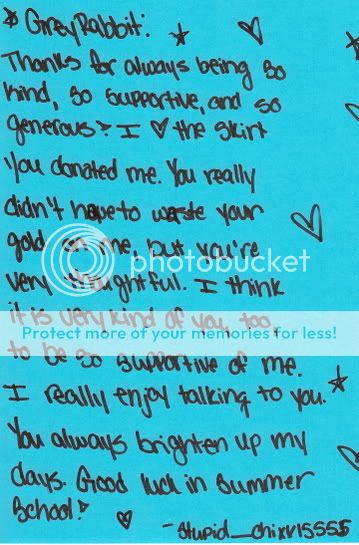 GreyRabbit:
Thanks for always being so
kind, so supportive, and so
generous! I ♥ the skirt
you donated me. You really
didn't have to waste your
gold on me, but you're
very thoughtful. I think
it is very kind of you, too,
to be so supportive of me.
I really enjoy talking to you.
You always brighten up my
days. Good luck in Summer
School!
-Stupid_chixx15555
photobucket
Protect more of your memories for less!